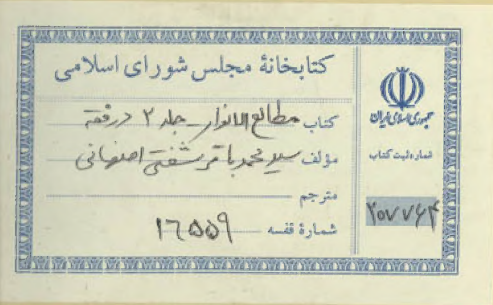 کتابخانهٔ مجلس شورای اسلامی
کتاب مطالع الانوار - جلد ۲ در فقه
مؤلف سید محمد باقر شفتی اصفهانی
مترجم
شمارهٔ قفسه ۱۶۵۵۹
جمهوری اسلامی ایران
شماره ثبت کتاب
۲۰۷۷۶۴